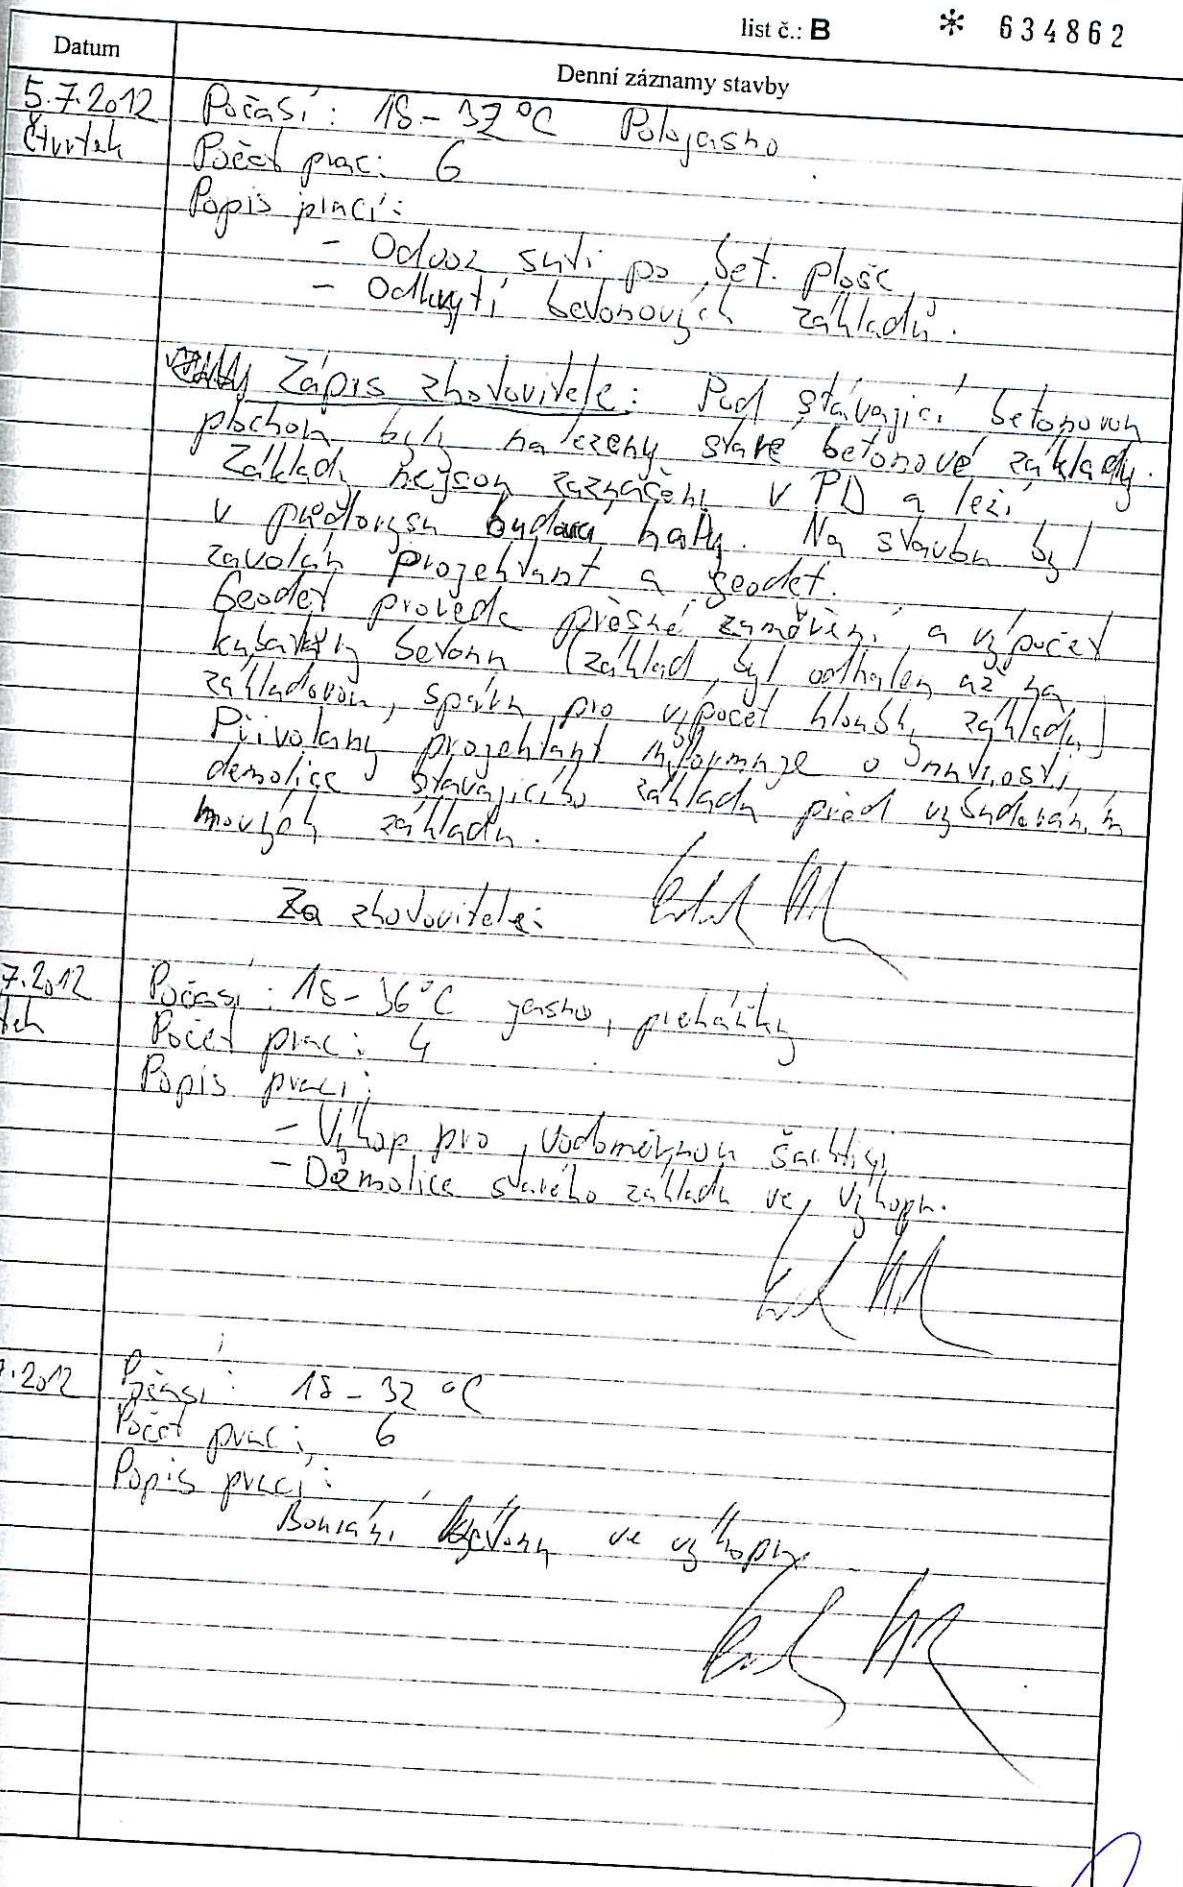 list č.: B * 634862
Datum
Denní záznamy stavby
5.7.2012 Počasí: 18 - 32 °C Polojasno
čtvrtek Počet prac: 6
Popis prací:
- Odvoz suti po bet. ploše
- Odkrytí betonových základů.
Zápis zhotovitele: Pod stávající betonovou
plochou byly nalezeny staré betonové základy.
Základy nejsou zaznačeny v PD a leží
v půdorysu budoucí haly. Na stavbu byl
zavolán projektant a geodet.
Geodet provede přesné zaměření a výpočet
kubatury betonu (základ byl odhalen až na
základovou spáru pro výpočet hloubky základu)
Přivolaný projektant informuje o nutnosti
demolice stávajícího základu před vybudováním
nových základu.
Za zhotovitele:
7.2012 Počasí: 18 - 36 °C jasno, přeháňky
tek Počet prac: 4
Popis prací:
- Výkop pro vodoměrnou šachtici
- Demolice starého základu ve výkopu.
7.2012 Počasí: 18 - 32 °C
Počet prac: 6
Popis prací:
Bourání betonu ve výkopu.